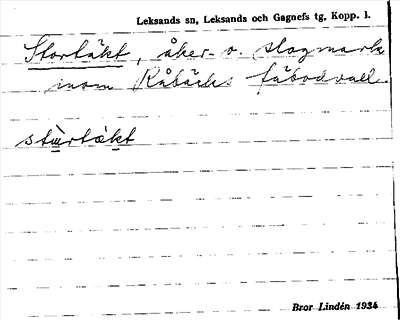 Leksands sn, Leksands och Gagnefs tg, Kopp. l.
Stortäkt, åker- o. slogmark
inom Råbäcks fäbodvall.
stùrtàkt
Bror Lindén 1934